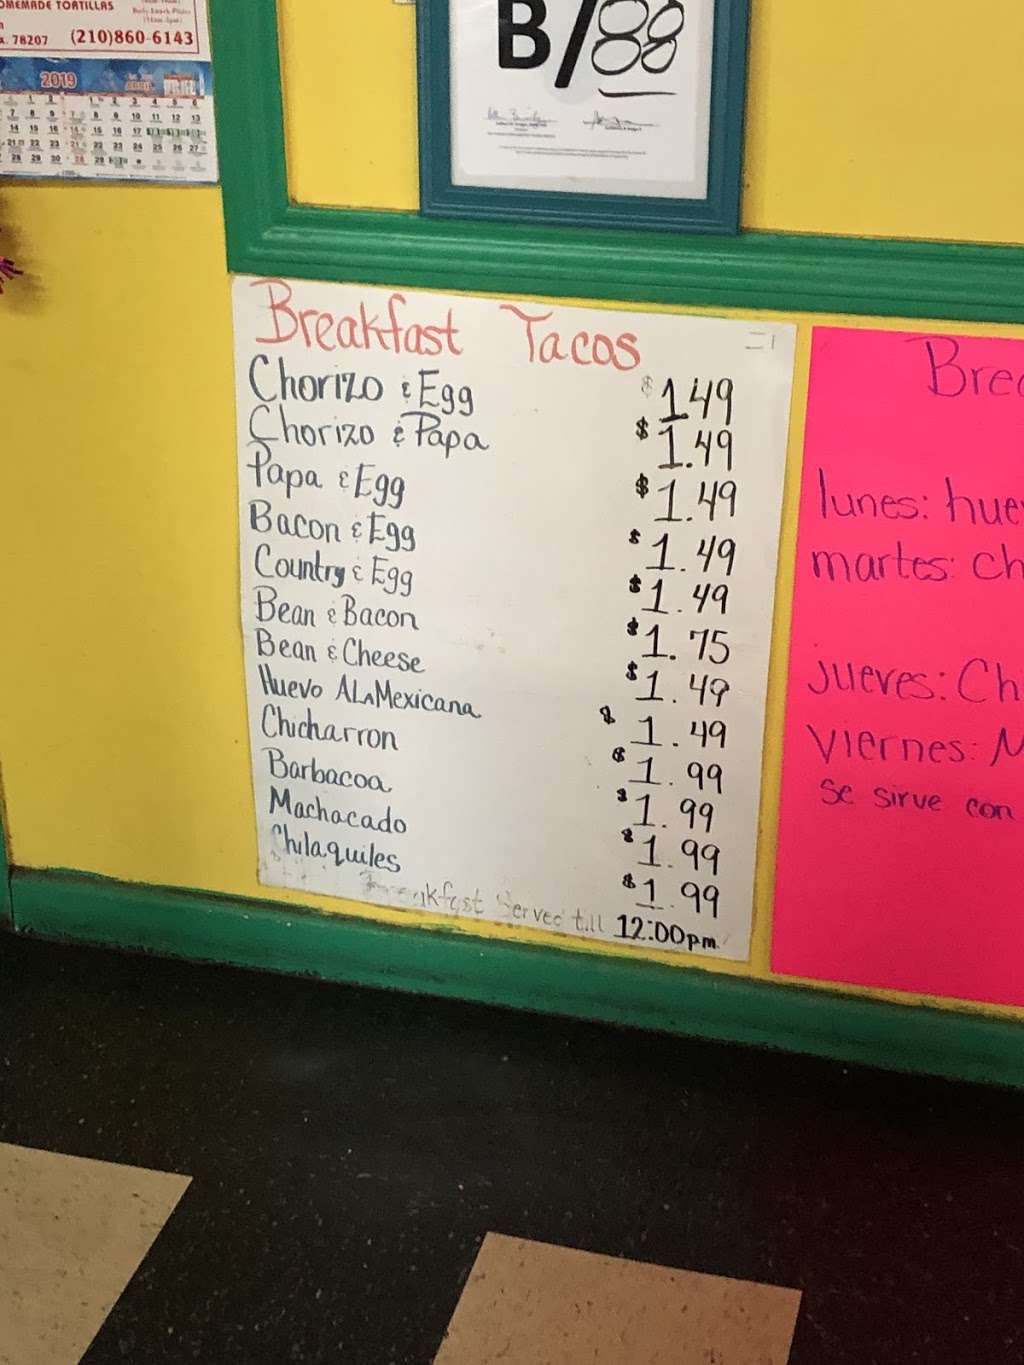 OMEMADE TORTILLAS
78207 (210)860-6143
2019
B/88
Breakfast Tacos
Chorizo & Egg $1.49
Chorizo & Papa $1.49
Papa & Egg $1.49
Bacon & Egg $1.49
Country & Egg $1.49
Bean & Bacon $1.75
Bean & Cheese $1.49
Huevo ALAMexicana $1.49
Chicharron $1.99
Barbacoa $1.99
Machacado $1.99
Chilaquiles $1.99
Breakfast Served till 12:00pm
Brea
lunes: huev
martes: ch
Jueves: Ch
Viernes: M
se sirve con